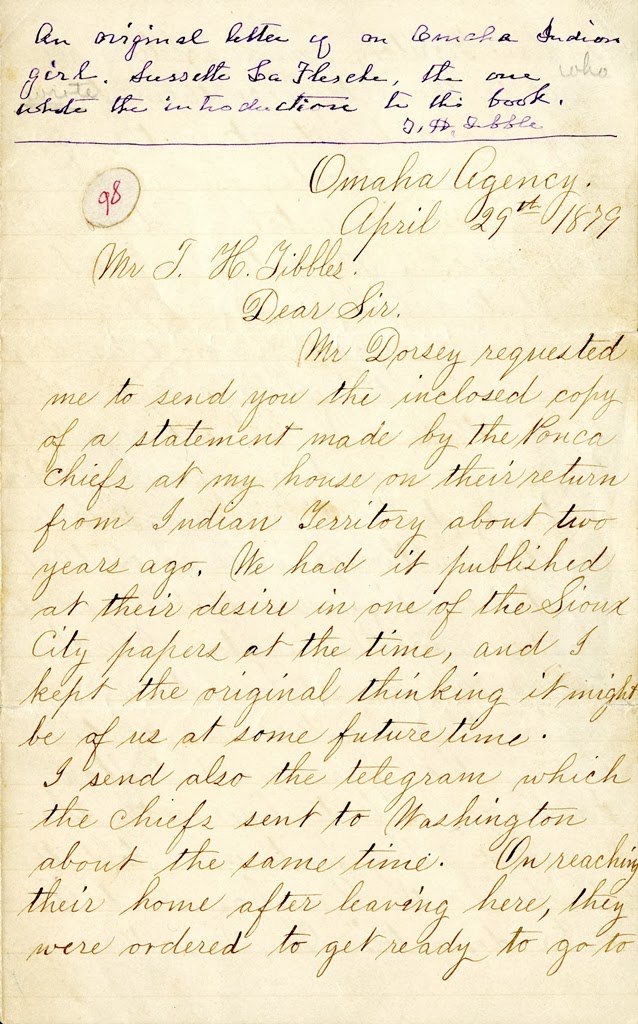 An original letter of an Omaha Indian
girl. Sussette La Flesche, the one who
wrote the introduction to this book.
T. H. Tibble
98
Omaha Agency.
April 29th 1879
Mr T. H. Tibbles.
Dear Sir.
Mr Dorsey requested
me to send you the inclosed copy
of a statement made by the Ponca
chiefs at my house on their return
from Indian Territory about two
years ago. We had it published
at their desire in one of the Sioux
City papers at the time, and I
kept the original thinking it might
be of us at some future time.
I send also the telegram which
the chiefs sent to Washington
about the same time. On reaching
their home after leaving here, they
were ordered to get ready to go to